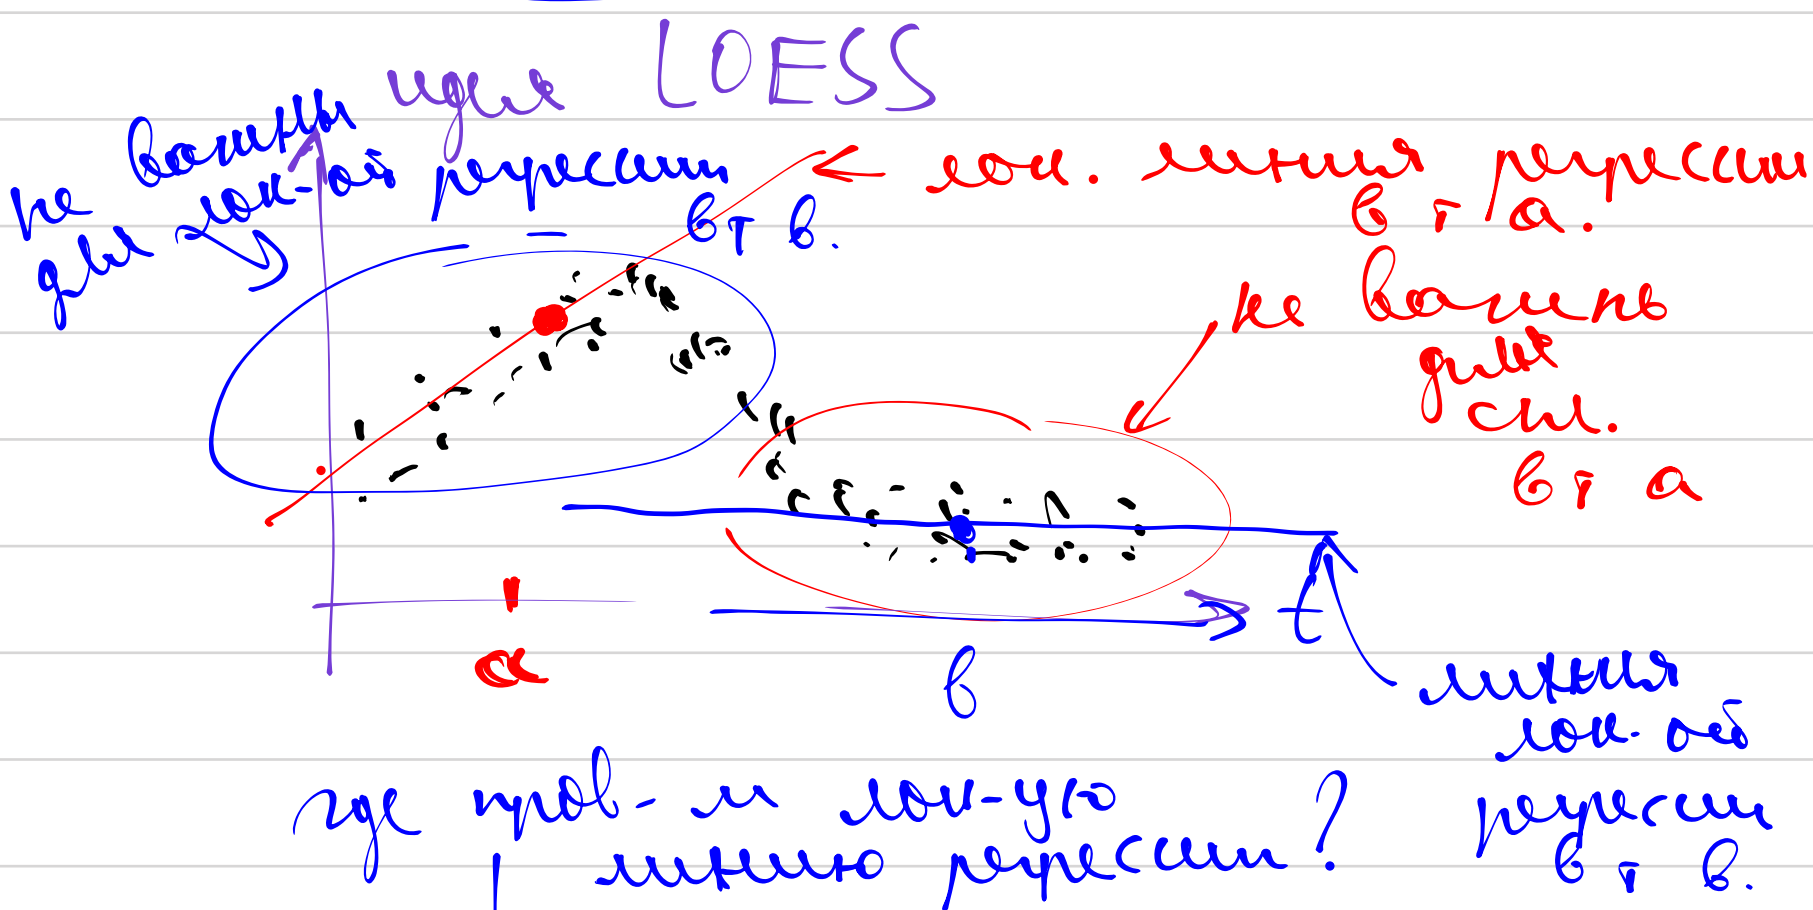 идея LOESS
не важны
для лок-ой регрессии
в т в.
лок. линия регрессии
в т а.
не важны
для
в т а
t
а
в
линия
лок-ой
регрессии
в т в.
где пров-м лок-ую
линию регрессии?